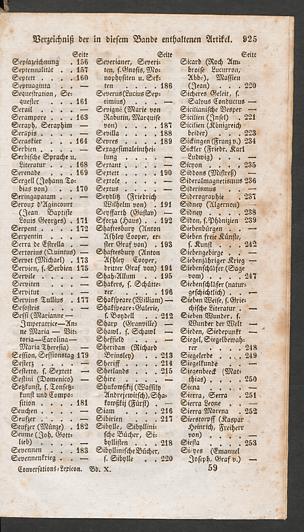 Verzeichniß der in diesem Bande enthaltenen Artikel. 925
Seite
Seplazeichnung . 156
Septennalität . . 157
Septett . . . . 160
Septuaginta . . —
Sequestration, Se-
quester . . . 161
Serail . . . . —
Serampore . . 163
Seraph, Seraphim —
Serapis . . . —
Seraskier . . . 164
Serbien . . . —
Serbische Sprache u.
Literatur . . 168
Serenade . . . 169
Sergell (Johann To-
bias von) . . 170
Seringapatam . —
Seroux d'Agincourt
(Jean Baptiste
Louis Georges) . 171
Serpent . . . . 172
Serpentin . . . —
Serra de Estrella . —
Sertorius (Quintus) —
Servet (Michael) . 173
Servien, s. Serbien 175
Servile . . . . —
Serviten . . . —
Servitut . . . —
Servius Tullius . 177
Sesostris . . . —
Sessi (Marianne —
Imperatrice—An-
na Maria — Vit-
toria—Carolina—
Maria Theresia) —
Session, Sessionstag 179
Sesterz . . . . —
Sesterze, s. Septett —
Sestini (Domenico) —
Setzkunst, s. Tonsetz-
kunst und Compo-
sition . . . . 181
Seuchen . . . —
Seufzer . . . —
Seufzer (Münze) . 182
Seume (Joh. Gott-
lieb) . . . . —
Sevennen . . . 183
Sevennenkrieg . . —
Seite
Severianer, Severi-
ten, s. Gnosis, Mo-
nophysiten u. Sek-
ten . . . . 186
Severus (Lucius Sep-
timius) . . . —
Sévigné (Marie von
Rabutin, Marquise
von) . . . . 187
Sevilla . . . . 188
Sèvres . . . . 189
Sexagesimaleinthei-
lung . . . . —
Sextant . . . —
Sextett . . . . 190
Sextole . . . . —
Sextus . . . . —
Seydlitz (Friedrich
Wilhelm von) . 191
Seyffarth (Gustav) —
Sforza (Haus) . . 192
Shaftesbury (Anton
Ashley Cooper, er-
ster Graf von) . 193
Shaftesbury (Anton
Ashley Cooper,
dritter Graf von) 194
Shah-Allum . . 195
Shakers, s. Schütte-
rer . . . . 196
Shakspeare (William) —
Shakspeare-Galerie,
s. Boydell . . 212
Sharp (Granville) —
Shawl, s. Schawl —
Sheffield . . . —
Sheridan (Richard
Brinsley) . . 213
Sheriff . . . . 214
Shetlands . . . 215
Shire . . . . —
Shukowskij (Wassilij
Andrejewitsch), Sha-
kowskij (Fürst) —
Siam . . . . 216
Sibirien . . . 217
Sibylle, Sibyllini-
sche Bücher, Si-
byllisten . . . 218
Sibyllinische Bücher,
s. Sibylle . . 220
Seite
Sicard (Roch Am-
broise Cucurron,
Abbé), Massieu
(Jean) . . . 220
Sicheres Geleit, s.
Salvus Conductus —
Sicilianische Vesper —
Sicilien (Insel) . 221
Sicilien (Königreich
beider) . . . 223
Sickingen (Franz v.) 234
Sickler (Friedr. Karl
Ludwig) . . . —
Sicyon . . . . 235
Siddons (Mistreß) —
Sideralmagnetismus 236
Siderismus . . —
Siderographie . . 237
Sidney (Algernon) —
Sidney . . . . 238
Sidon, s. Phönizien 239
Siebenbürgen . —
Sieben freie Künste,
s. Kunst . . . 242
Siebengebirge . —
Siebenjähriger Krieg —
Siebenschläfer (Sage
vom) . . . . 247
Siebenschläfer (natur-
geschichtlich) . —
Sieben Weise, s. Grie-
chische Literatur . —
Sieben Wunder, s.
Wunder der Welt —
Sieden, Siedepunkt —
Siegel, Siegelbewah-
rer . . . . 248
Siegelerde . . . 249
Siegelkunde . . —
Siegenbeek (Mat-
thias) . . . 250
Siena . . . . —
Sierra . . . . 251
Sierra Leone . . —
Sierra Morena . 252
Sierstorpff (Kaspar
Heinrich, Freiherr
von) . . . . —
Siesta . . . . 253
Sieyes (Emanuel
Joseph, Graf v.) —
Conversations-Lexicon. Bd. X.
59